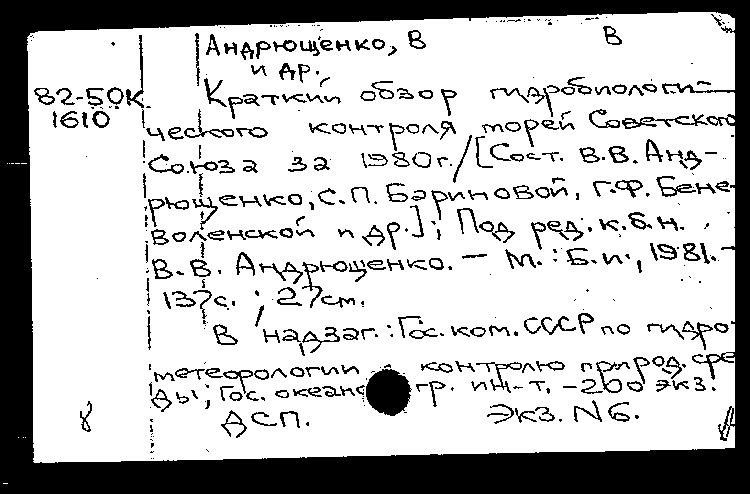 Андрющенко, В В
и др.
82-50К Краткий обзор гидробиологи-
1610 ческого контроля морей Советского
Союза за 1980г. / [Сост. В.В. Анд-
рющенко, С.П. Бариновой, Г.Ф. Бене-
воленской и др.]; Под ред. к.б.н.
В.В. Андрющенко. — М.: Б.и., 1981. —
137с.; 27см.
В надзаг.: Гос. ком. СССР по гидро-
метеорологии контролю природ. сре
ды; Гос. океаногр. ин-т, -200 экз.
ДСП. Экз. №6.